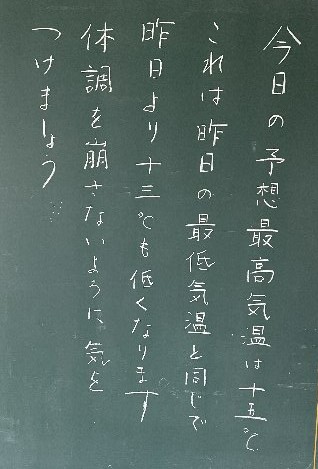 今日の予想最高気温は十五℃
これは昨日の最低気温と同じで
昨日より十三℃も低くなります
体調を崩さないように気を
つけましょう